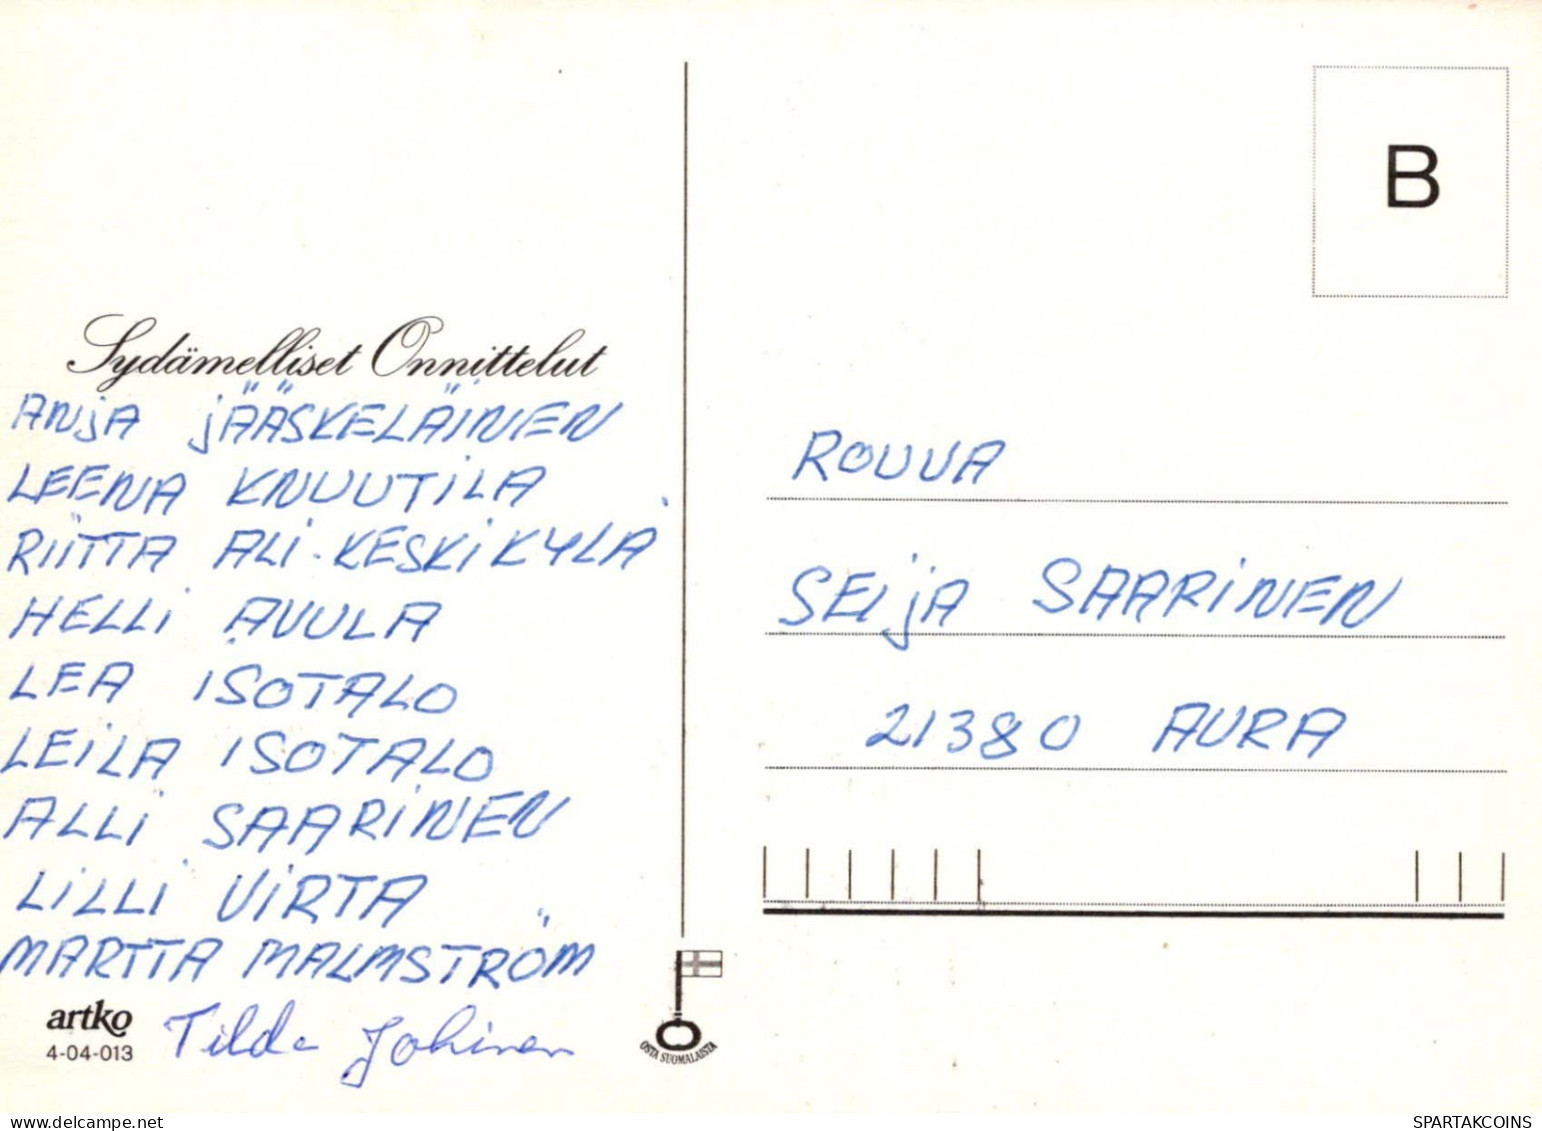 B
Sydämelliset Onnittelut
ANJA JÄÄSKELÄINEN
LEENA KNUUTILA
RIITTA ALI-KESKIKYLÄ
HELLI AVULA
LEA ISOTALO
LEILA ISOTALO
ALLI SAARINEN
LILLI VIRTA
MARTTA MALMSTRÖM
Tilda Johinen
artko
4-04-013
OSTA SUOMALAISTA
ROUVA
SEIJA SAARINEN
21380 AURA
delcampe.net
SPARTAKCOINS